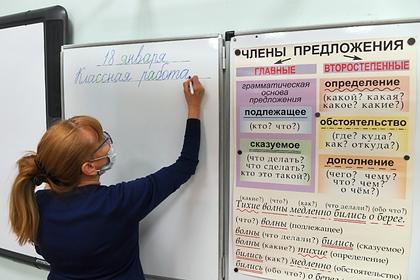 18 января
Классная работа
ЧЛЕНЫ ПРЕДЛОЖЕНИЯ
ГЛАВНЫЕ
ВТОРОСТЕПЕННЫЕ
грамматическая
основа
предложения
подлежащее
(кто? что?)
сказуемое
(что делать?
что сделать?
кто это такой?)
определение
(какой? какая?
какое? какие?)
обстоятельство
(где? куда?
как? откуда?)
дополнение
(чего? чему?
что? чем?
о чём?)
(какие?) (что?) (как?) (что делали?) (обо что?)
Тихие волны медленно бились о берег.
(что?) волны (подлежащее)
волны (что делали?) бились (сказуемое)
волны (какие?) тихие (определение)
бились (как?) медленно
бились (обо что?)